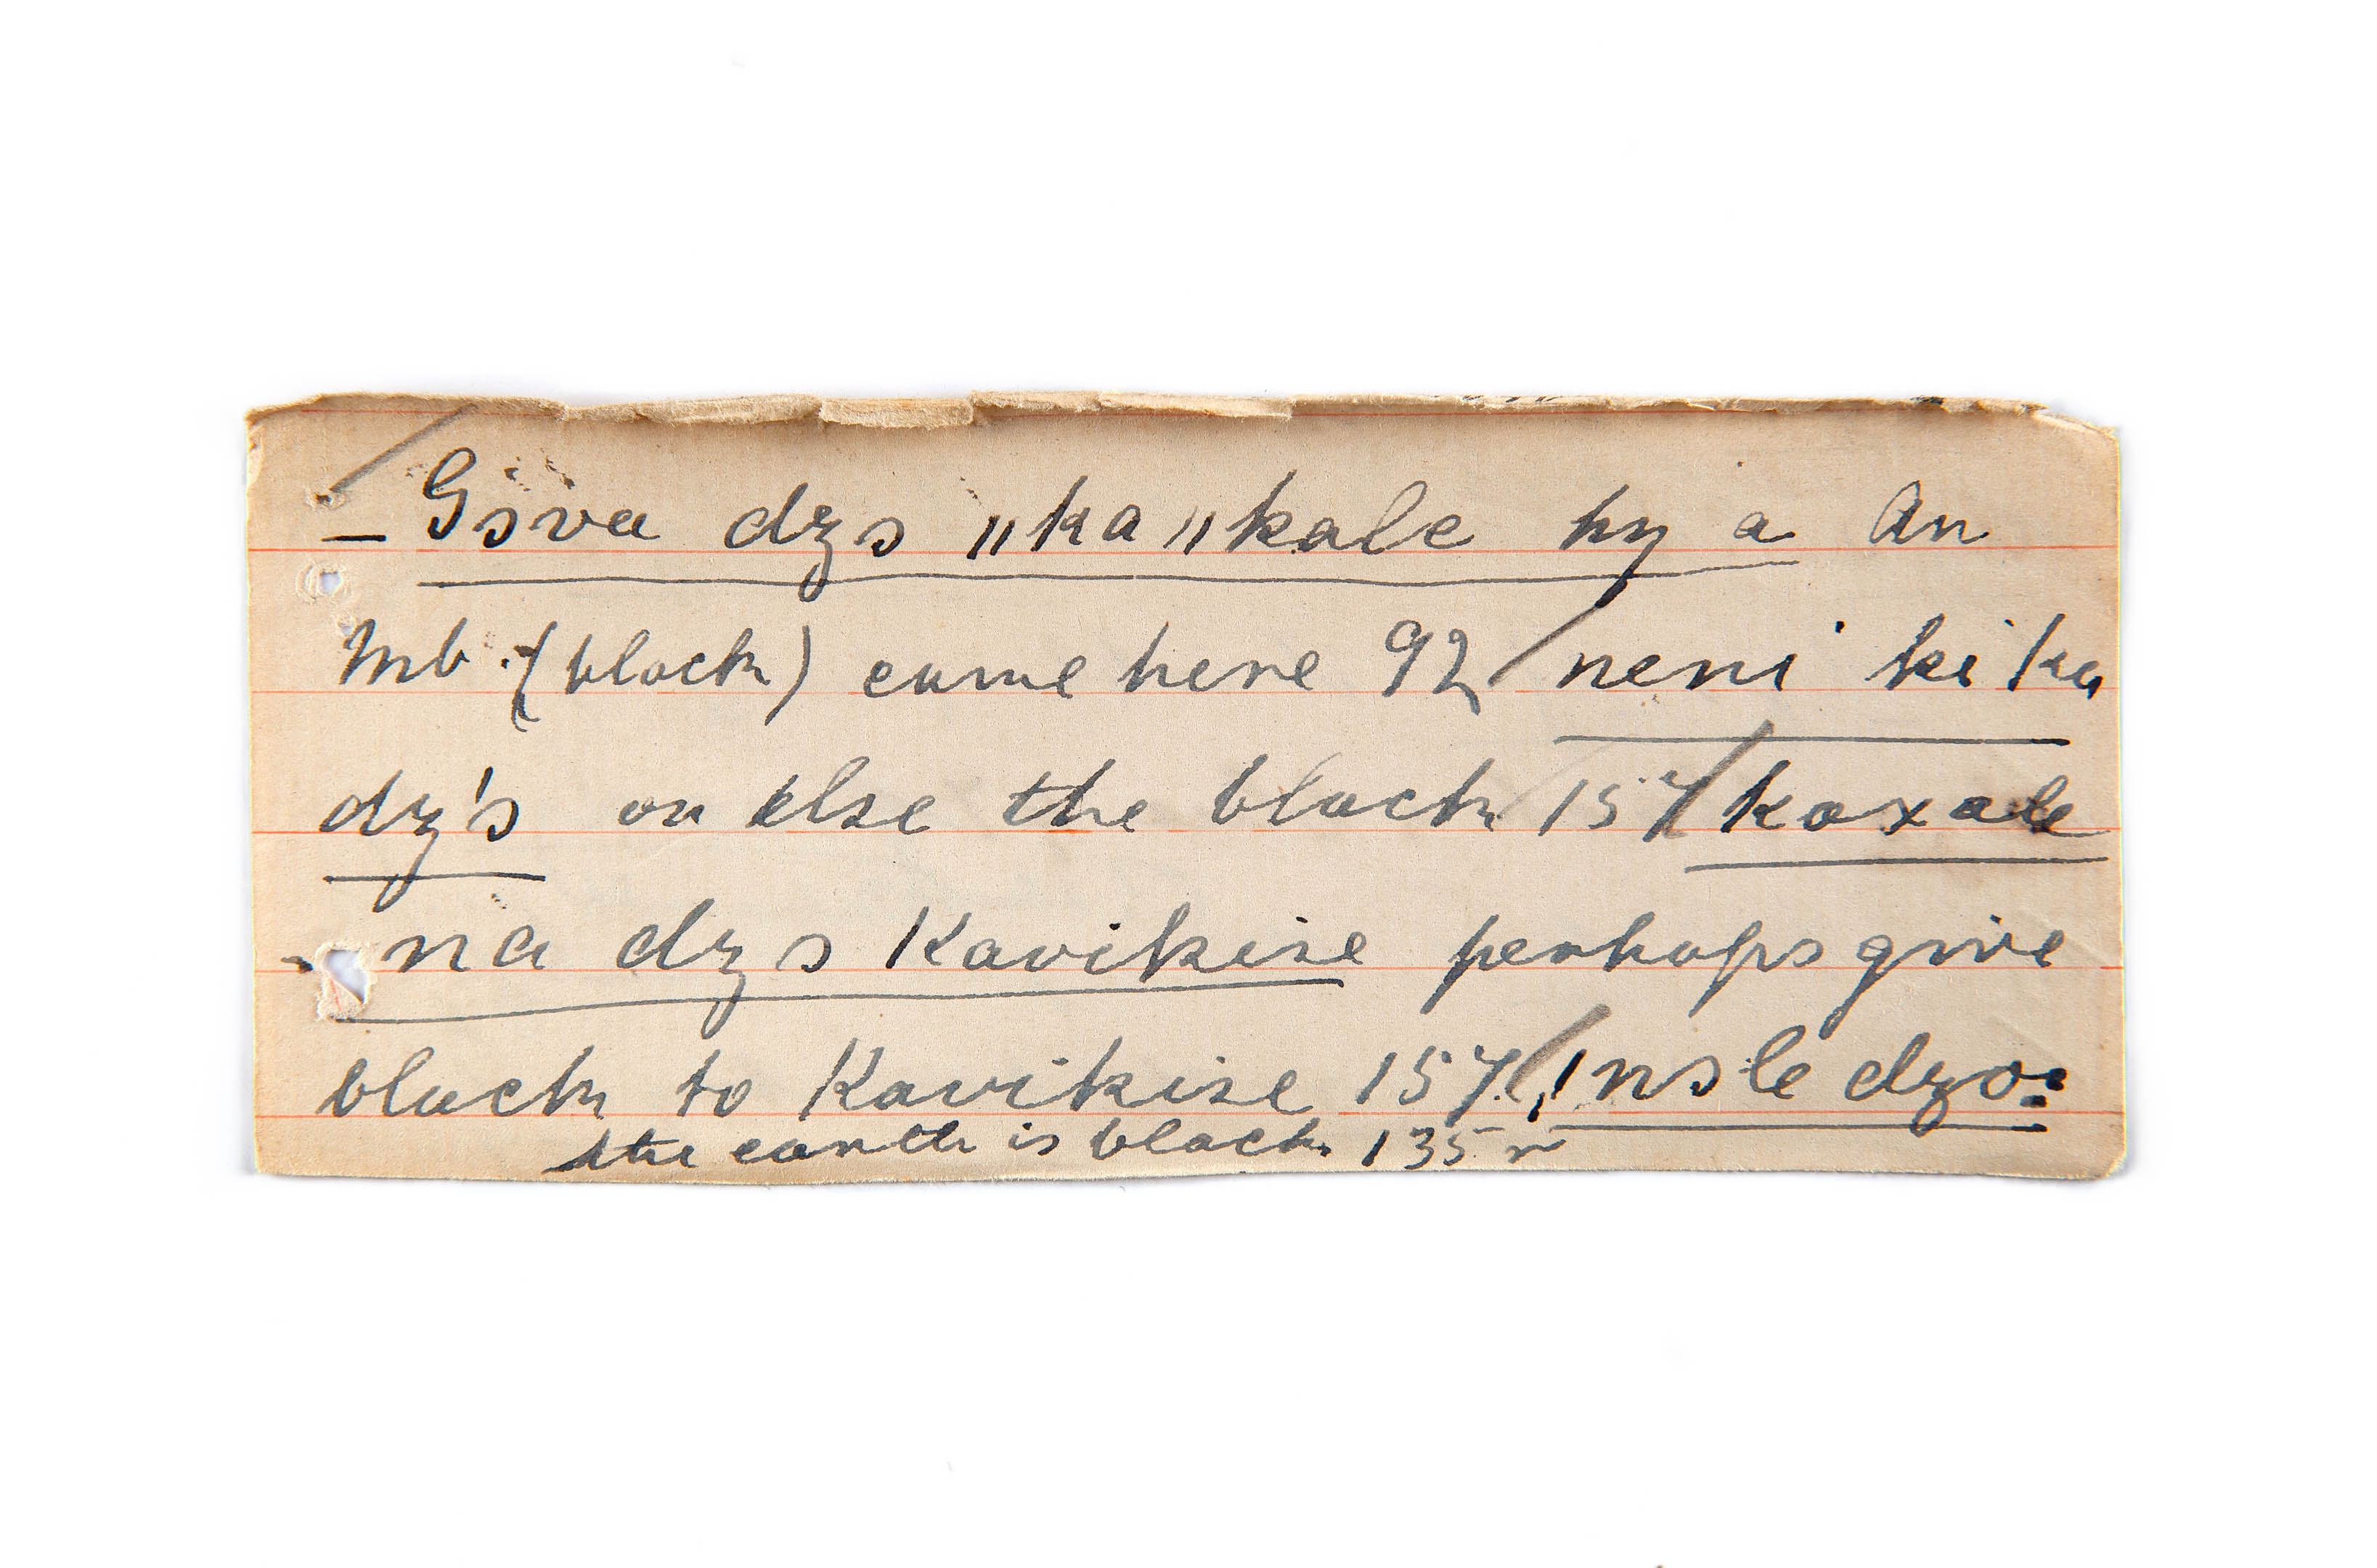 – Gɔva dzɔ "ka "kale hy a An
Mb. (black) came here 92 / neni ki ka
dz'ɔ or else the black 157 / kaxale
- na dzɔ Kavikise perhaps give
black to Kavikise 157. / ǀnɔle dzo:
the earth is black. 135 r